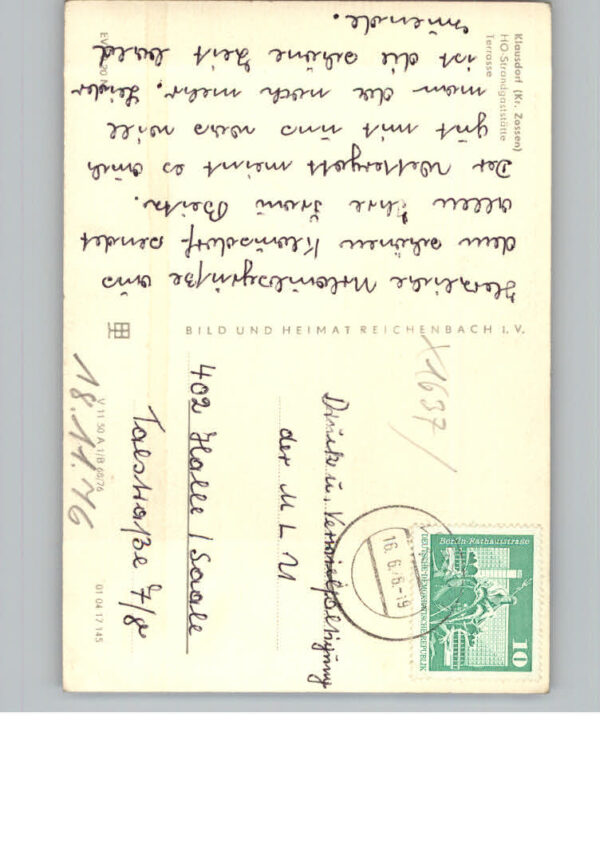 Klausdorf (Kr. Zossen)
HO-Strandgaststätte
Terrasse
Herzliche Urlaubsgrüße aus
dem schönen Klausdorf sendet
allen Ihre Frau Beitz.
Der Wettergott meint es auch
gut mit uns was will
man da noch mehr. Leider
ist die schöne Zeit bald
zuende.
BILD UND HEIMAT REICHENBACH I. V.
V 11 50 A 1/B 68/76
01 04 17 145
DEUTSCHE DEMOKRATISCHE REPUBLIK
Berlin-Rathausstraße
10
16. 6. 76.-19
Druck u. Vervielfältigung
der MLU
402 Halle / Saale
Talstraße 7/8
18.11.76